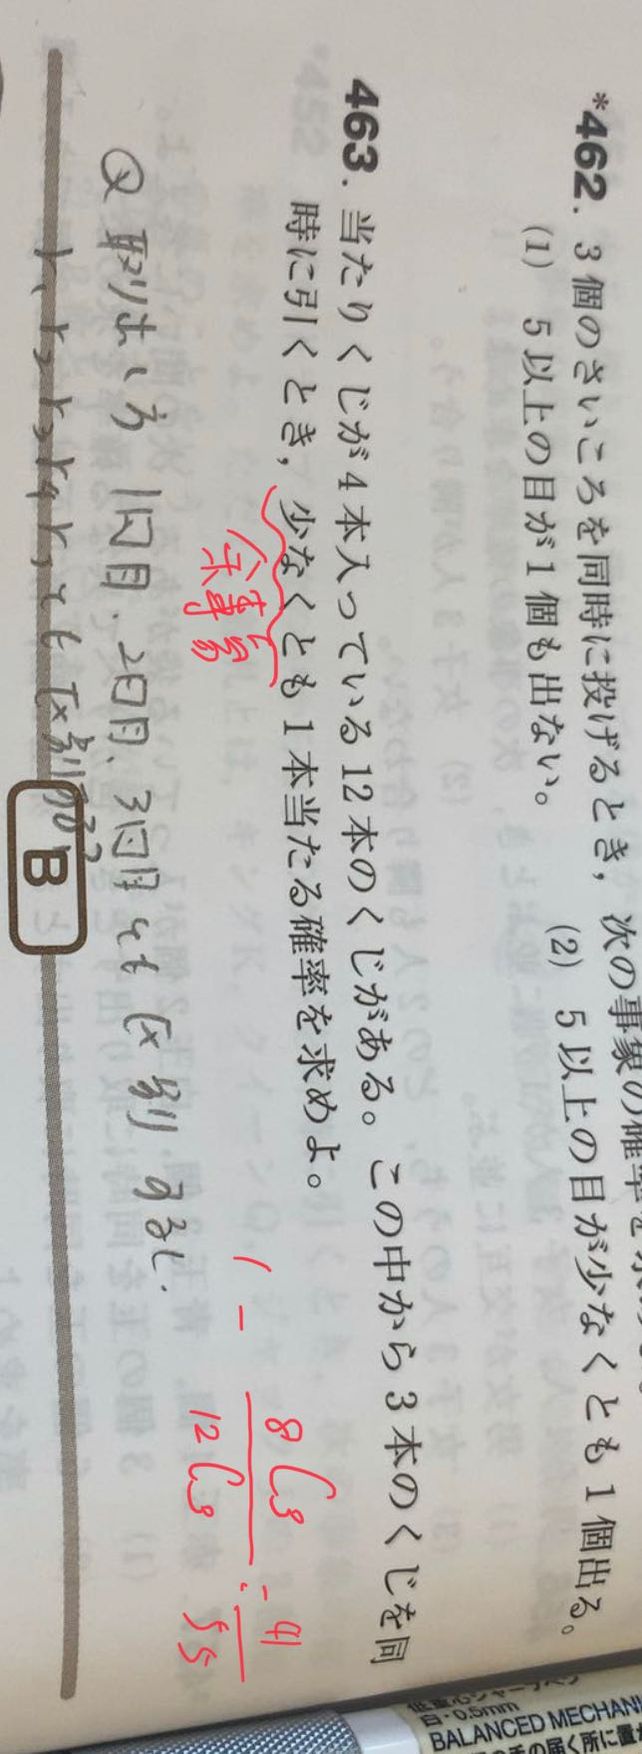 *462. 3個のさいころを同時に投げるとき，次の事象の確率を求
(1) 5以上の目が1個も出ない。 (2) 5以上の目が少なくとも1個出る。
463. 当たりくじが4本入っている12本のくじがある。この中から3本のくじを同
時に引くとき，少なくとも1本当たる確率を求めよ。
余事象
1 - 8C3/12C3 = 41/55
Q 取り出し方 1回目、2回目、3回目とも区別するし、
とっても区別する?
B
0.5mm
BALANCED MECHANI
の届く所に置か